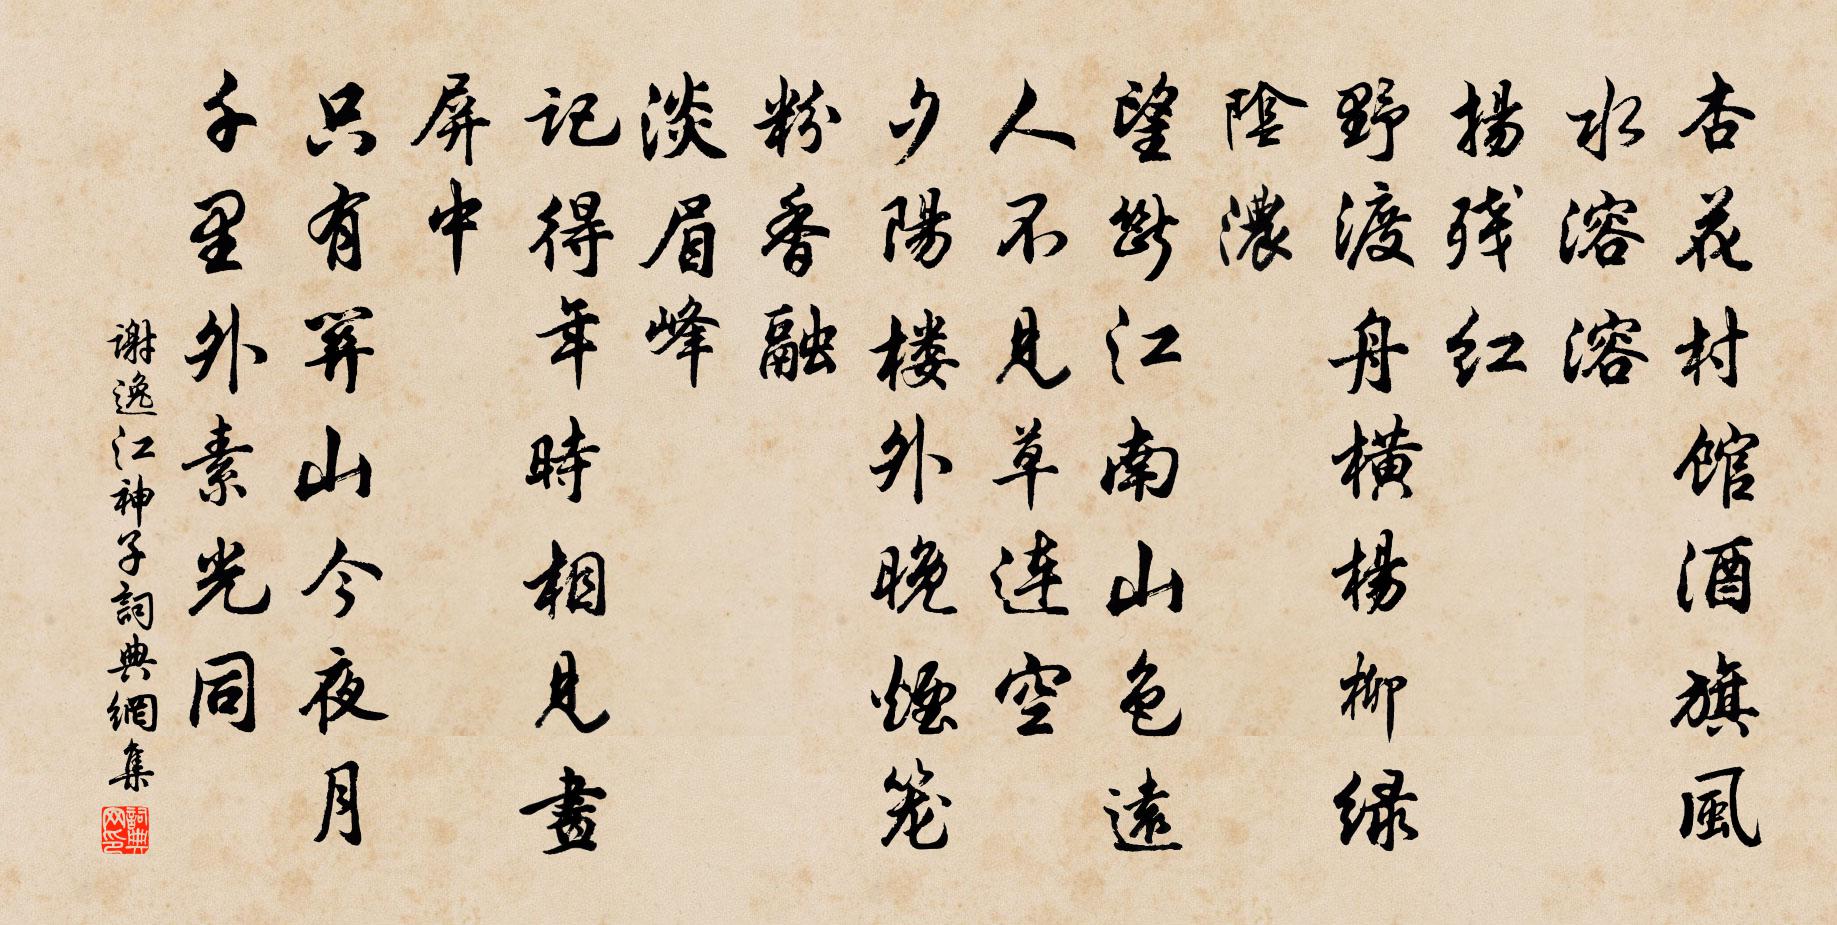 杏花村馆酒旗風
水溶溶
揚残红
野渡舟横楊柳绿
陰濃
望断江南山色遠
人不見草连空
夕陽楼外晚煙笼
粉香融
淡眉峰
記得年時相見畫
屏中
只有関山今夜月
千里外素光同
谢逸江神子詞典網集
詞典網印